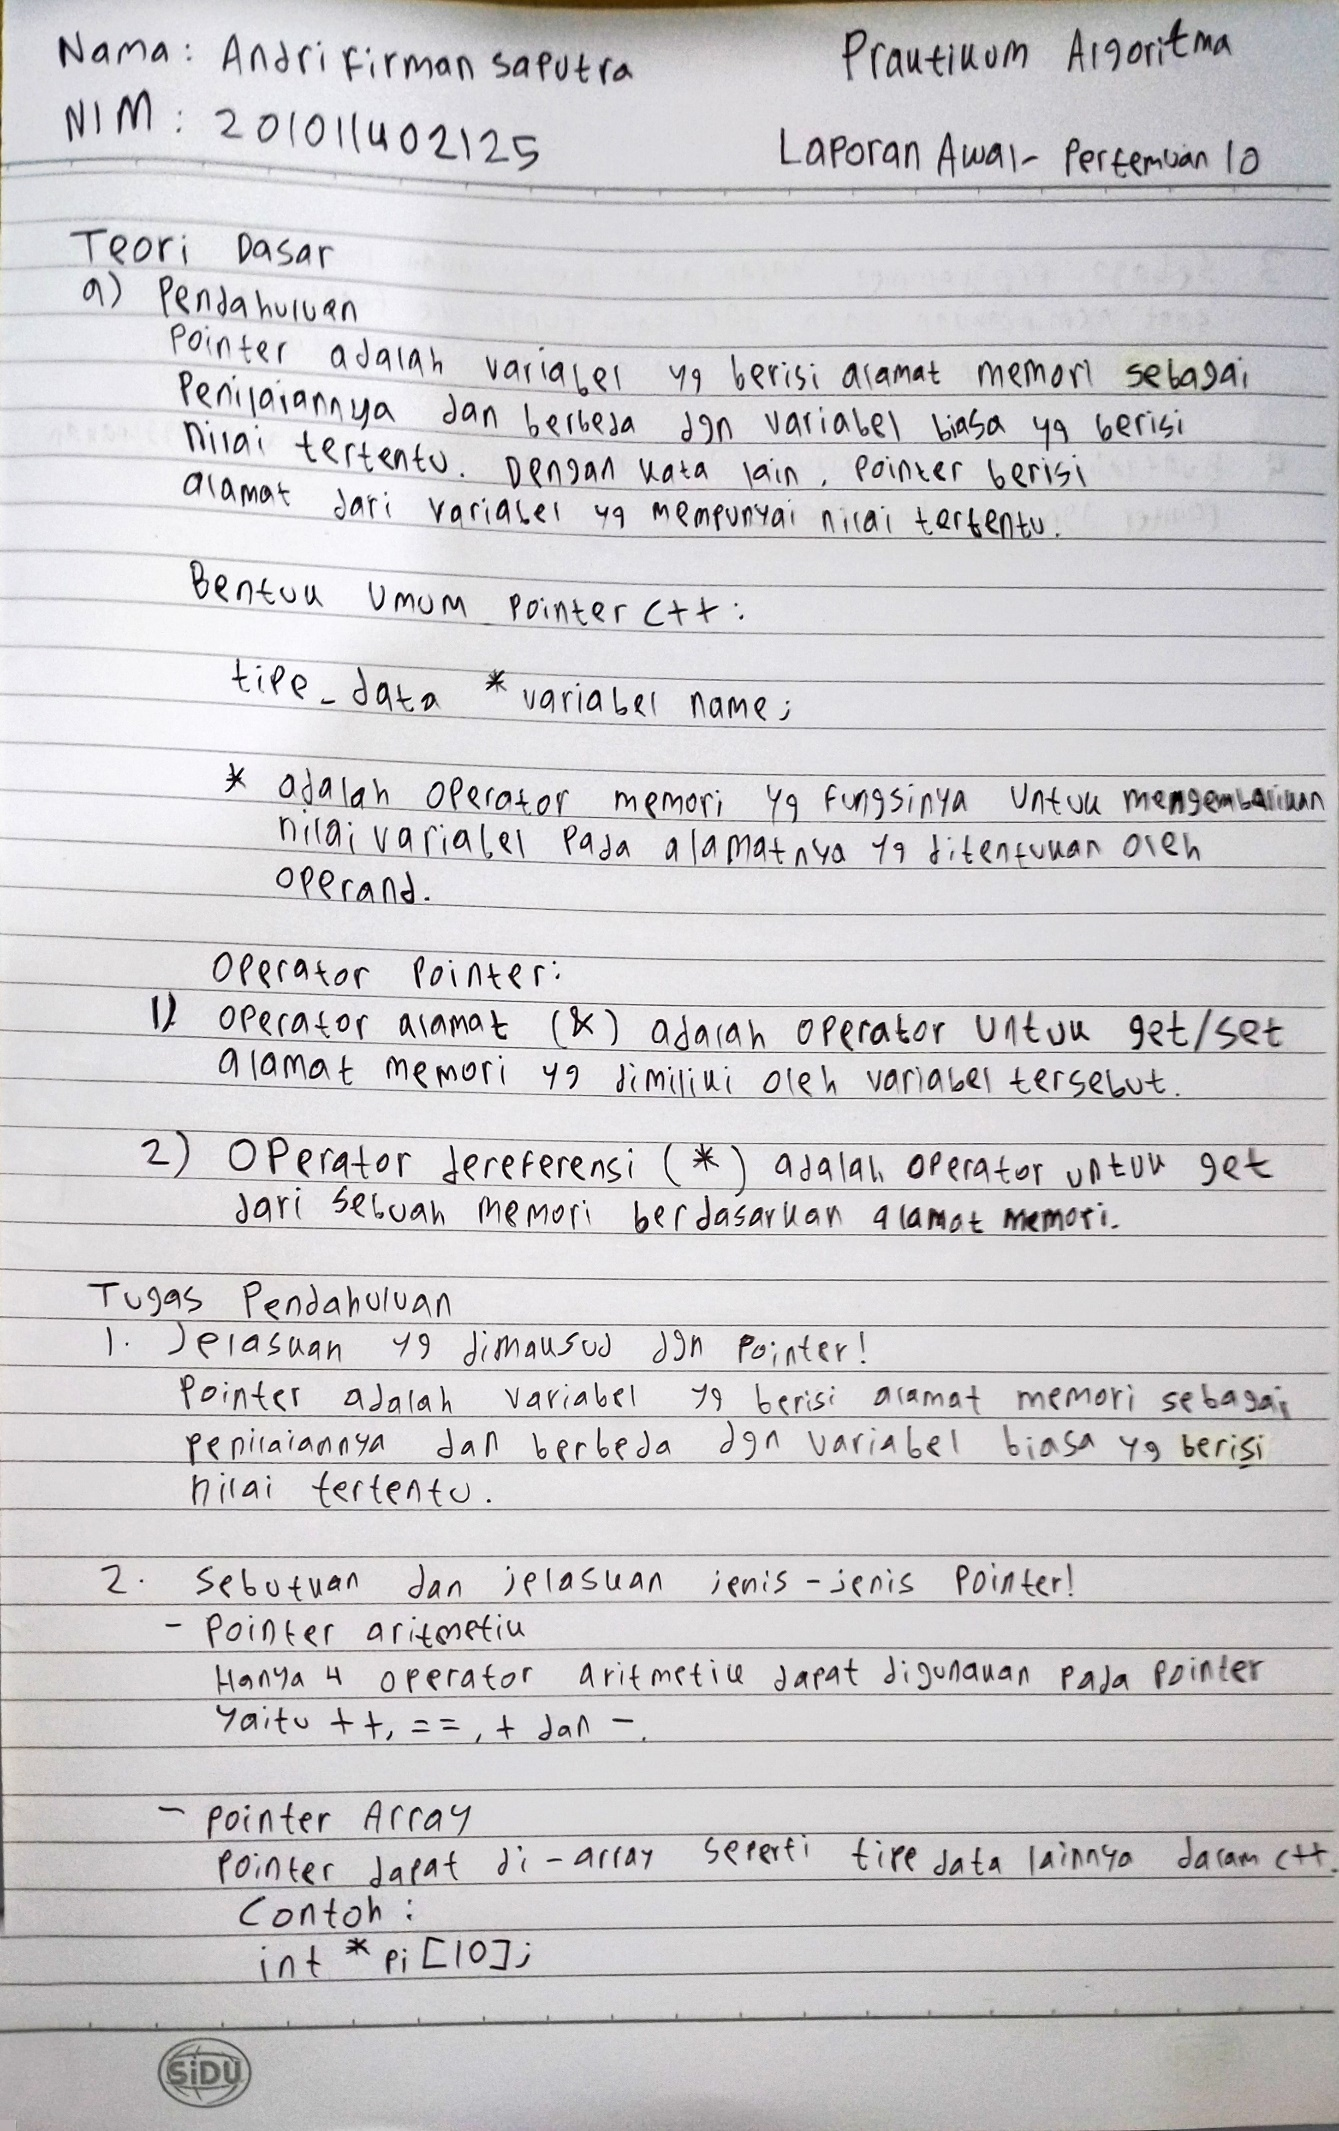 Nama : Andri Firman Saputra
Praktikum Algoritma
NIM : 201011402125
Laporan Awal - Pertemuan 10
Teori Dasar
a) Pendahuluan
Pointer adalah variabel yg berisi alamat memori sebagai
Penilaiannya dan berbeda dgn variabel biasa yg berisi
nilai tertentu. Dengan kata lain, pointer berisi
alamat dari variabel yg mempunyai nilai tertentu.
Bentuk Umum Pointer C++ :
tipe_data * variabel name;
* adalah operator memori yg fungsinya untuk mengembalikan
nilai variabel pada alamatnya yg ditentukan oleh
operand.
Operator Pointer:
1) Operator alamat (&) adalah operator untuk get/set
alamat memori yg dimiliki oleh variabel tersebut.
2) Operator dereferensi (*) adalah operator untuk get
dari sebuah memori berdasarkan alamat memori.
Tugas Pendahuluan
1. Jelaskan yg dimaksud dgn pointer!
Pointer adalah variabel yg berisi alamat memori sebagai
penilaiannya dan berbeda dgn variabel biasa yg berisi
nilai tertentu.
2. Sebutkan dan jelaskan jenis-jenis Pointer!
- Pointer aritmetik
Hanya 4 operator aritmetik dapat digunakan pada pointer
yaitu ++, ==, + dan -.
- Pointer Array
Pointer dapat di-array seperti tipe data lainnya dalam C++.
Contoh :
int * pi [10];
SiDU